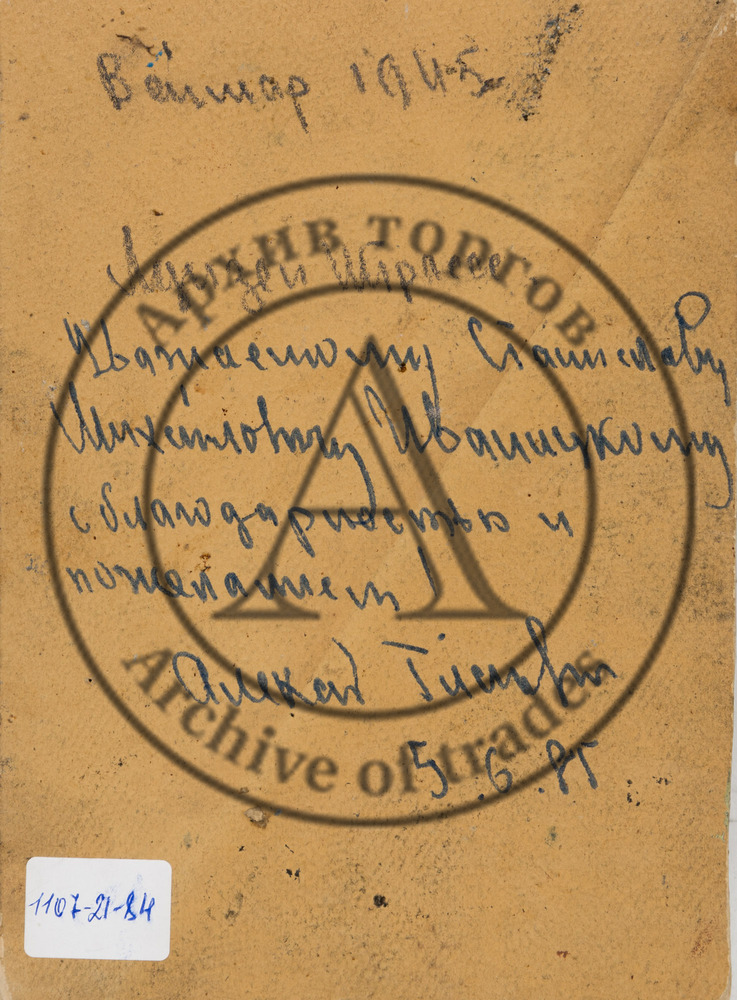 Веймар 1945
Архив торгов
Штрассе
Уважаемому Станиславу
Михайловичу Иваницкому
с благодарностью и
пожеланием!
Алексей
5.6.85
Archive of trades
1107-21-84